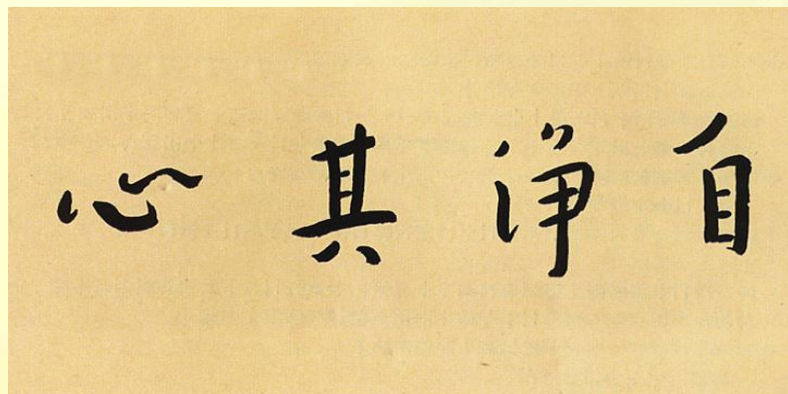 自淨其心